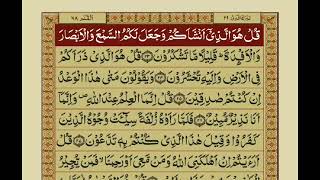 قُلْ هُوَ الَّذِیْۤ اَنْشَاَكُمْ وَجَعَلَ لَكُمُ السَّمْعَ وَالْاَبْصَارَ
وَالْاَفْـِٕدَةَ ؕ قَلِیْلًا مَّا تَشْكُرُوْنَ ﴿۲۳﴾ قُلْ هُوَ الَّذِیْ ذَرَاَكُمْ
فِی الْاَرْضِ وَاِلَیْهِ تُحْشَرُوْنَ ﴿۲۴﴾ وَیَقُوْلُوْنَ مَتٰی هٰذَا الْوَعْدُ
اِنْ كُنْتُمْ صٰدِقِیْنَ ﴿۲۵﴾ قُلْ اِنَّمَا الْعِلْمُ عِنْدَ اللّٰهِ ۪ وَاِنَّمَاۤ
اَنَا نَذِیْرٌ مُّبِیْنٌ ﴿۲۶﴾ فَلَمَّا رَاَوْهُ زُلْفَةً سِیْٓـَٔتْ وُجُوْهُ الَّذِیْنَ
كَفَرُوْا وَقِیْلَ هٰذَا الَّذِیْ كُنْتُمْ بِهٖ تَدَّعُوْنَ ﴿۲۷﴾ قُلْ
اَرَءَیْتُمْ اِنْ اَهْلَكَنِیَ اللّٰهُ وَمَنْ مَّعِیَ اَوْ رَحِمَنَا ۙ فَمَنْ یُّجِیْرُ